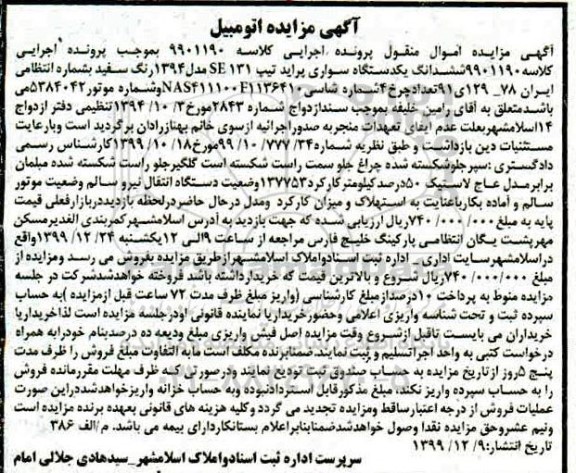 آگهی مزایده اتومبیل
آگهی مزایده اموال منقول پرونده اجرایی کلاسه ۹۹۰۱۱۹۰ بموجب پرونده اجرایی
کلاسه۹۹۰۱۱۹۰ششدانگ یکدستگاه سواری پراید تیپ SE ۱۳۱ مدل۱۳۹۴رنگ سفید بشماره انتظامی
ایران ۷۸_ ۱۲۹ی۹۱تعدادچرخ۴شماره شاسی NAS۴۱۱۱۰۰F۱۱۳۶۴۱۰وشماره موتور۵۳۸۴۰۴۲می
باشدمتعلق به آقای رامین خلیفه بموجب سندازدواج شماره ۲۸۴۳مورخ۳/ ۱۰/ ۱۳۹۴تنظیمی دفتر ازدواج
۱۴اسلامشهربعلت عدم ایفای تعهدات منجربه صدوراجرائیه ازسوی خانم بهنازرادان برگردید است وبارعایت
مستثنیات دین بازداشت و طبق نظریه شماره۳۴/ ۷۷۷/ ۹۹/۱۰مورخ۱۸/ ۱۰/ ۱۳۹۹کارشناس رسمی
دادگستری :سپرجلوشکسته شده چراغ جلو سمت راست شکسته است گلگیرجلو راست شکسته شده مبلمان
برابرمدل عاج لاستیک ۵۰درصدکیلومترکارکرد۱۳۷۷۵۳وضعیت دستگاه انتقال نیرو سالم وضعیت موتور
سالم و آماده بکارباعنایت به استهلاک و میزان کارکرد ومدل درحال حاضردرلحظه بازدیددربازارفعلی قیمت
پایه به مبلغ ۰۰۰/ ۰۰۰/ ۷۴۰ریال ارزیابی شده که جهت بازدید به آدرس اسلامشهرکمربندی الغدیرمسکن
مهرپشت یگان انتظامی پارکینگ خلیج فارس مراجعه از ساعت ۹الی ۱۲یکشنبه ۲۴/ ۱۲/ ۱۳۹۹واقع
دراسلامشهرسایت اداری _ اداره ثبت اسنادواملاک اسلامشهرازطریق مزایده بفروش می رسد ومزایده از
مبلغ ۰۰۰/۰۰۰/ ۷۴۰ریال شروع و بالاترین قیمت که خریدارداشته باشد فروخته خواهدشدشرکت در جلسه
مزایده منوط به پرداخت ۱۰درصدازمبلغ کارشناسی (واریز مبلغ ظرف مدت ۷۲ ساعت قبل ازمزایده )به حساب
سپرده ثبت و تحت شناسه واریزی اعلامی وحضورخریداریا نماینده قانونی اودرجلسه مزایده است لذاخریداریا
خریداران می بایست تاقبل ازشروع وقت مزایده اصل فیش واریزی مبلغ ودیعه ده درصدبنام خودرابه همراه
درخواست کتبی به واحد اجراتسلیم و ثبت نمایند.ضمنابرنده مکلف است مابه التفاوت مبلغ فروش را ظرف مدت
پنج ۵روز ازتاریخ مزایده به حساب صندوق ثبت تودیع نمایند ودرصورتی که ظرف مهلت مقررمانده فروش
را به حساب سپرده واریز نکند، مبلغ مذکورقابل استردادنبوده وبه حساب خزانه واریزخواهدشددراین صورت
عملیات فروش از درجه اعتبارساقط ومزایده تجدید می گردد وکلیه هزینه های قانونی بعهده برنده مزایده است
ونیم عشروحق مزایده نقدا وصول خواهدشدضمنابنابراعلام بستانکاردارای بیمه می باشد. م/الف ۳۸۶
تاریخ انتشار:۹/ ۱۲/ ۱۳۹۹
سرپرست اداره ثبت اسنادواملاک اسلامشهر_سیدهادی جلالی امام